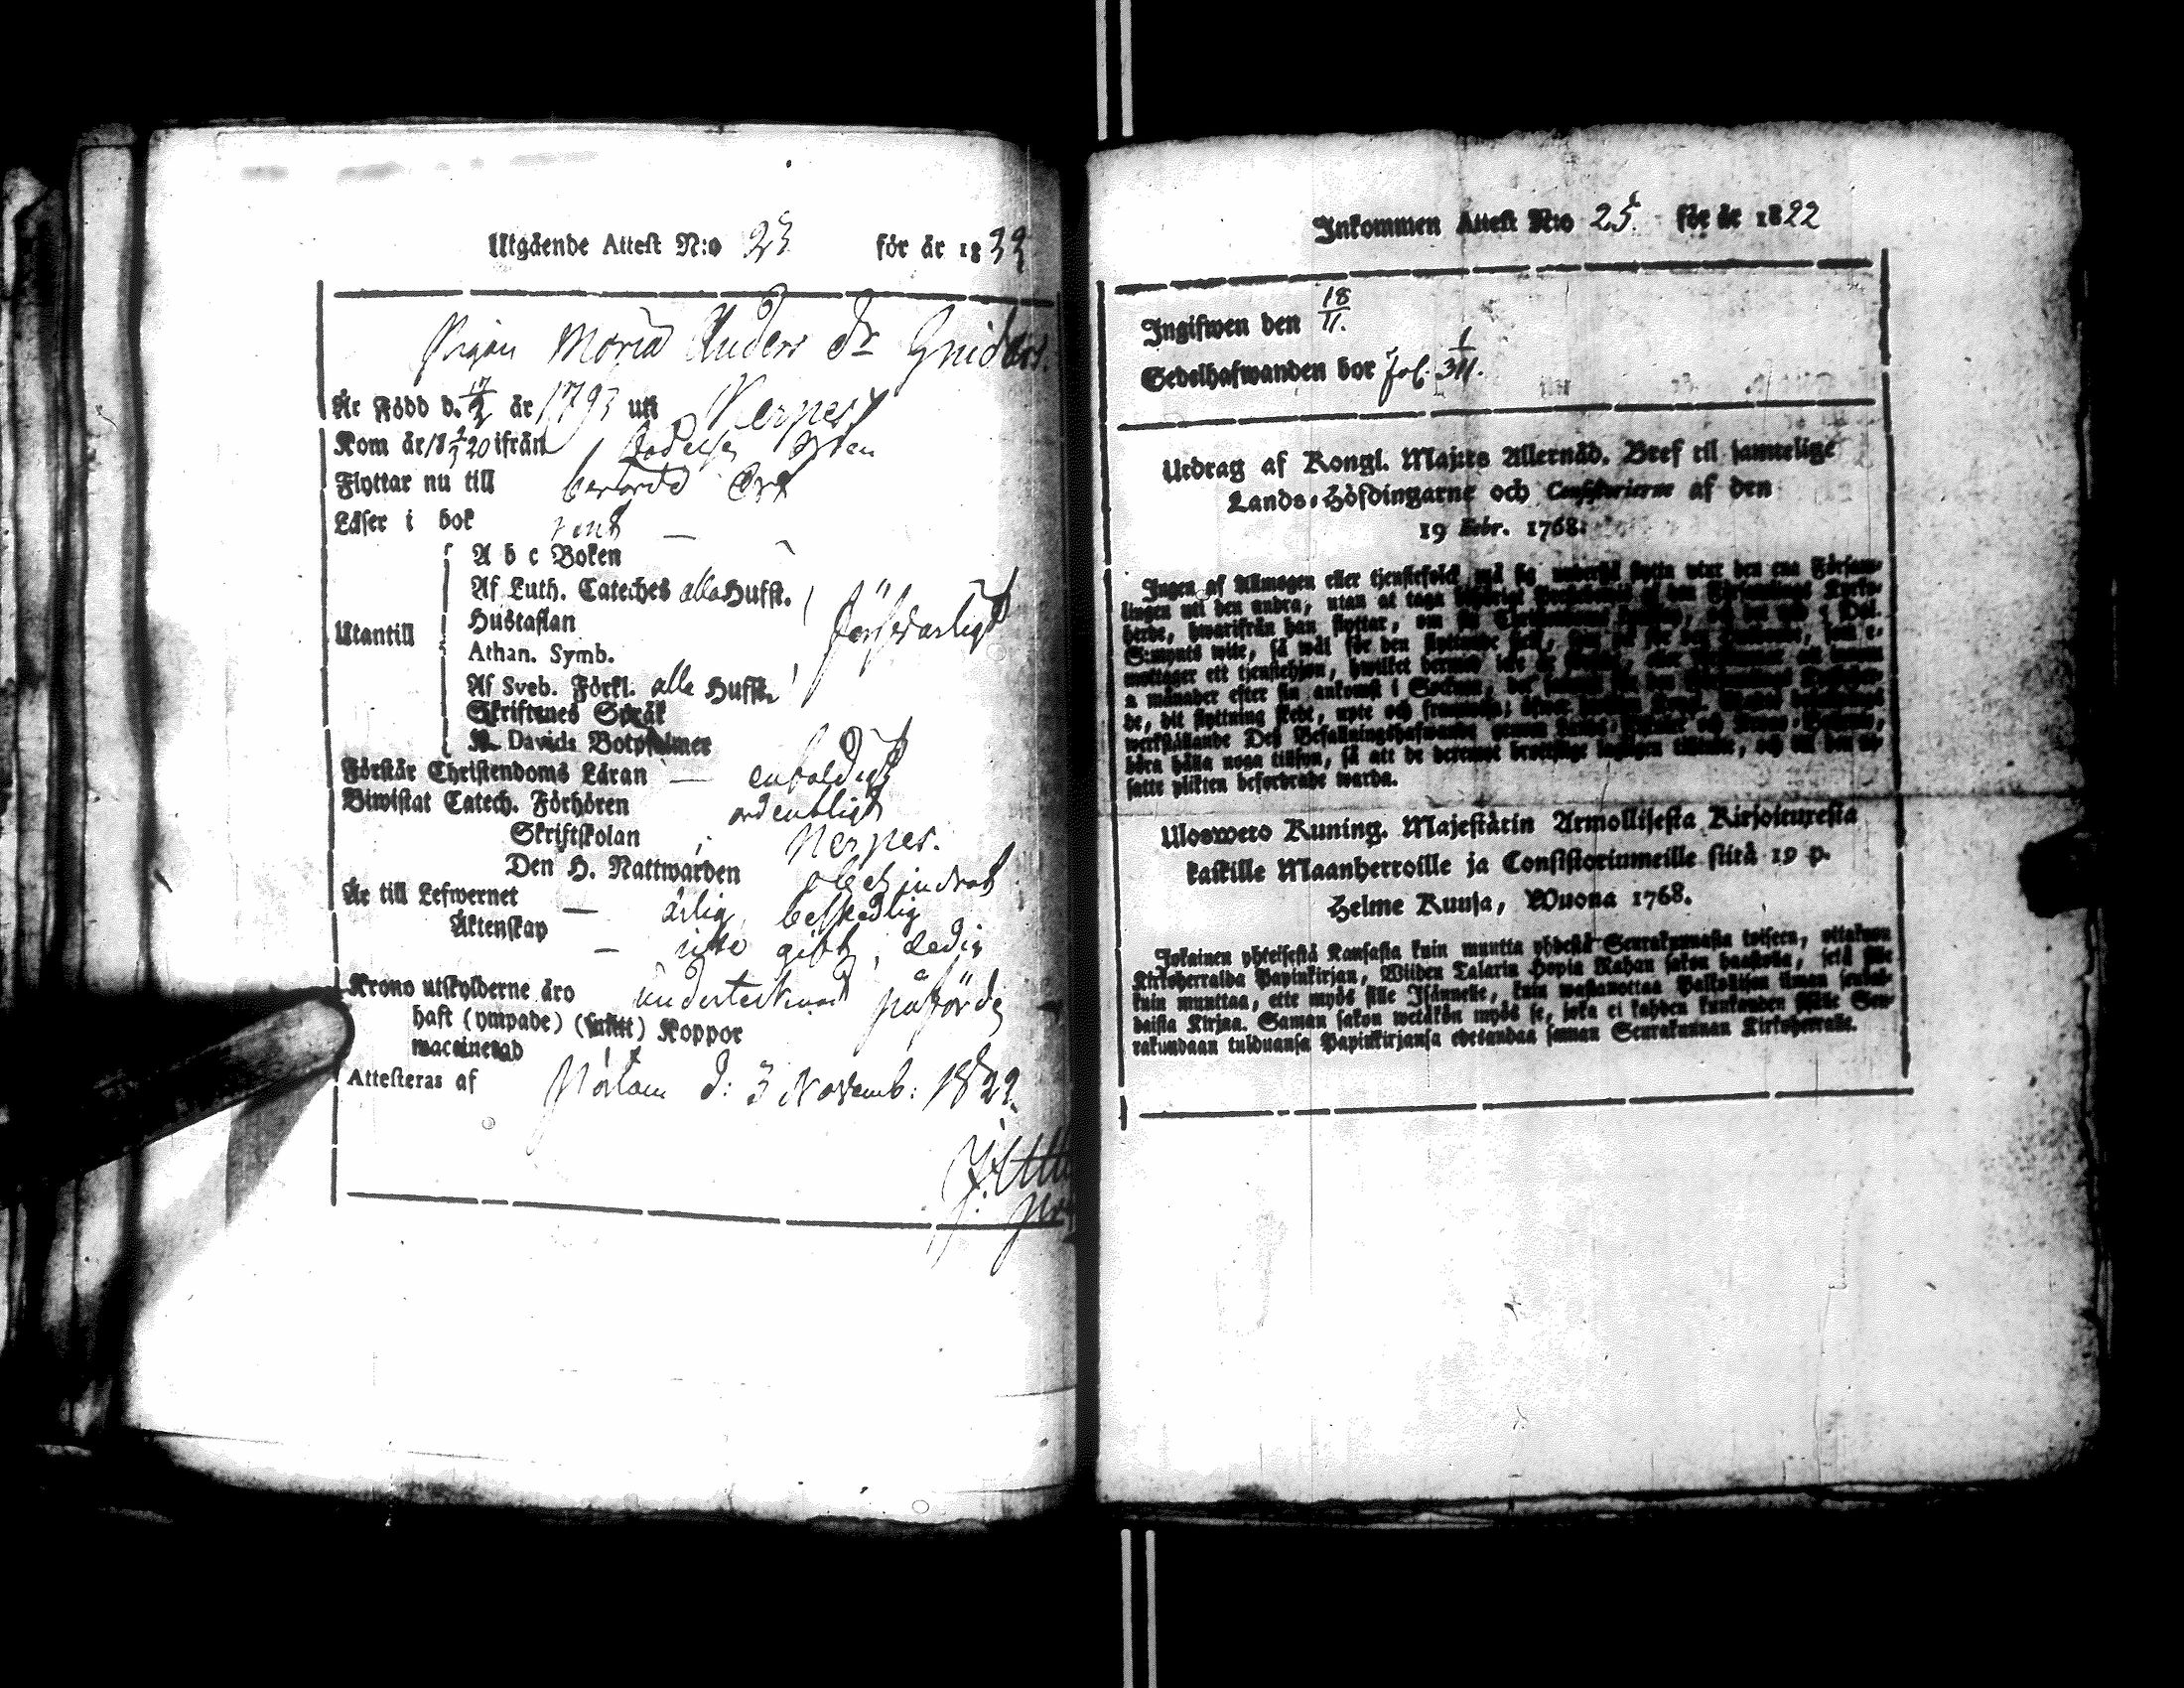 Utgående Attest N:o 23 för år 1822
Pigan Maria Anders dr
Är Född d. 17/2 år 1793 uti Nerpes
Kom år 18 20 ifrån
Flyttar nu till berörde Ort
Läser i bok rent —
A b c Boken
Af Luth. Cateches alla Hufst.
Hustaflan
Utantill försvarligt
Athan. Symb.
Af Sveb. Förkl. alla Hufst.
Skriftenes Språk
K. Davids Botpsalmer
Förstår Christendoms Läran — enfaldigt
Biwistat Catech. Förhören ordentligt
Skriftskolan i Nerpes.
Den H. Nattwarden obehindrat
Är till Lefwernet — ärlig, beskedlig
Äktenskap — icke gift, ledig
Krono utskylderne äro undertecknad påförde
haft (ympade) Koppor
waccinerad
Attesteras af Pörtom d: 3 Novemb: 1822.
Inkommen Attest N:o 25. för år 1822
Ingifwen den 18/11.
Sedelhafwanden bor fol. 1/311.
Utdrag af Kongl. Maj:ts Allernåd. Bref til samtelige
Lands-Höfdingarne och Consistorierne af den
19 Febr. 1768.
Ingen af Allmogen eller tjenstefolck må sig flytta utur den ena Försam-
lingen uti den andra, utan at taga af den Församlings Kyrko-
herde, hwarifrån han flyttar, om sin Christendoms och wid 5 Dal.
S:mynts wite, så wäl för den flyttande sielf, som
mottager ett tjenstehjon, hwilket
2 månader efter sin ankomst i Socknen,
de, dit flyttning skedt, upte och framwisa;
werkställande Des Befallningshafwande genom
böra hålla noga tillsyn, så att de deremot brottslige lagligen tilltalte, och till den ut-
satte plikten befordrade warda.
Uloswero Kuning. Majestätin Armollisesta Kirjoituxesta
kaikille Maanherroille ja Consistoriumeille siitä 19 p.
Helme Kuusa, Wuona 1768.
Jokainen yhteisestä Kansasta kuin muutta yhdestä Seurakunnasta toiseen, ottakoon
Kirkoherralda Papinkirjan, Wiiden Talarin Hopia Rahan sakon haastolla, sekä sille
kuin muuttaa, ette myös sille Isännelle, kuin wastanottaa Palkollisen ilman
daista Kirjaa. Saman sakon wetäkön myös se, joka ei kahden kuukauden sisälle Seu-
rakundaan tulduansa Papinkirjansa edesandaa saman Seurakunnan Kirkoherralle.